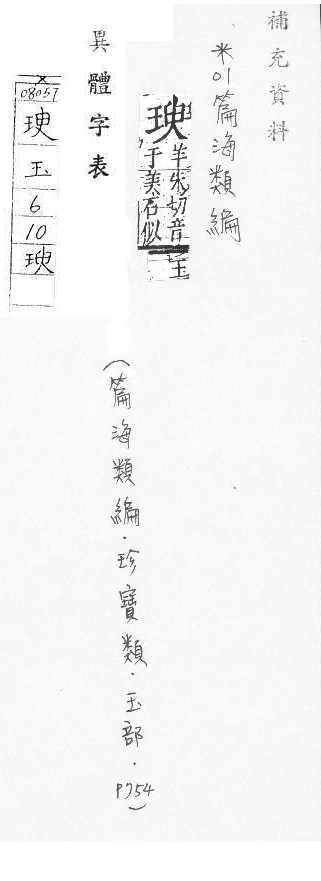 補充資料
※01篇海類編
羊朱切音
于美石似
玉
異體字表
08057
玉
6
10
(篇海類編.珍寶類.玉部.P754)